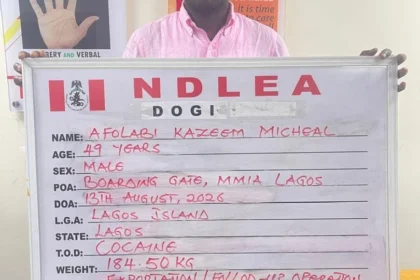 It is time
to care
ERY AND VERBAL
NDLEA
DOGI
NAME: AFOLABI KAZEEM MICHEAL
AGE: 49 YEARS
SEX: MALE
POA: BOARDING GATE, MMIA LAGOS
DOA: 13TH AUGUST, 2026
L.G.A: LAGOS ISLAND
STATE: LAGOS
T.O.D: COCAINE
WEIGHT: 184.50KG
EXPORTATION/FOLLOW-UP OPERATION